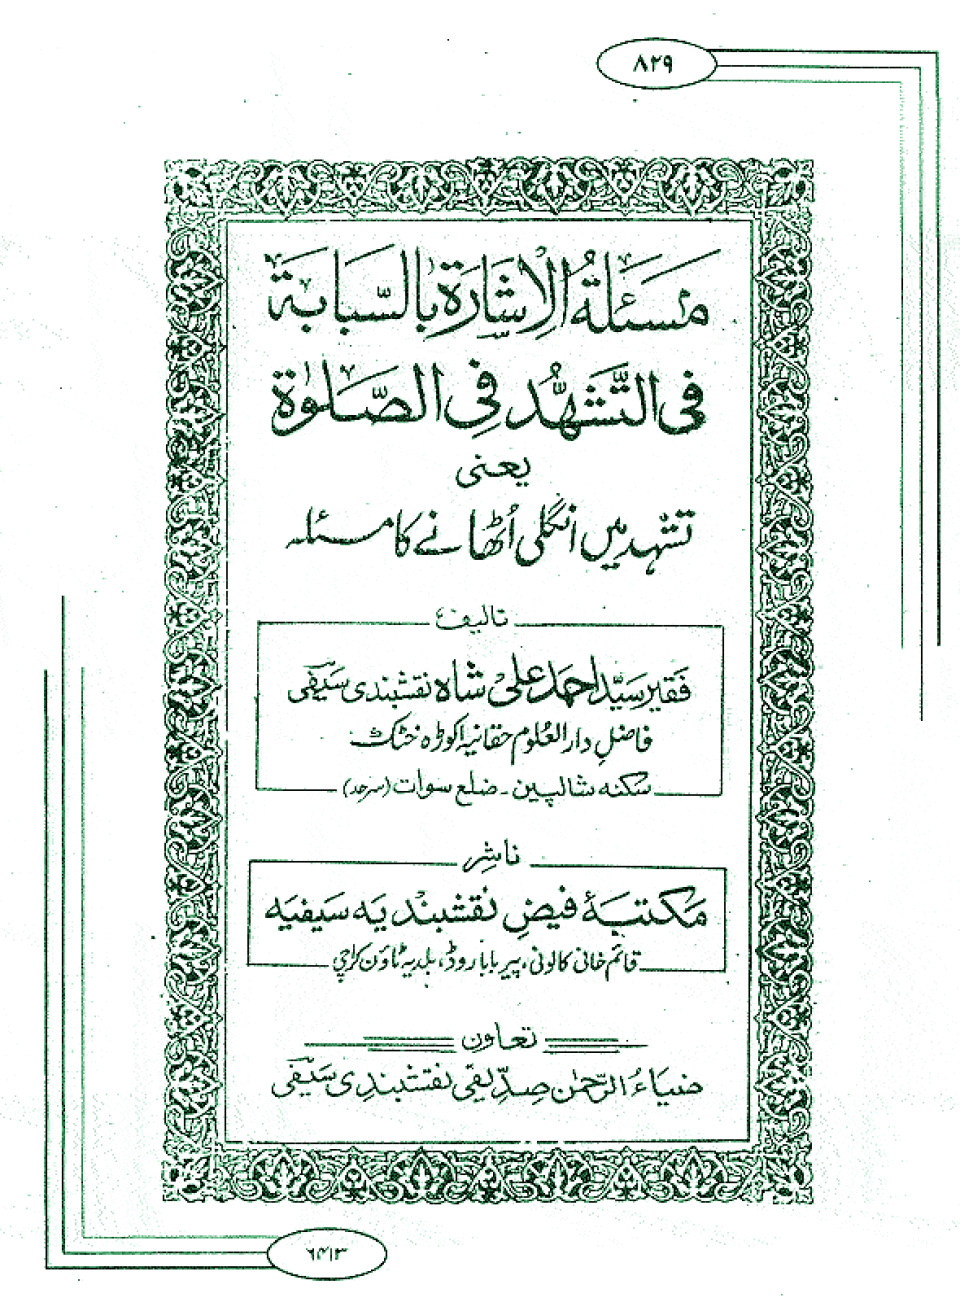 ۸۲۹
مَسْئَلَةُ الْاِشَارَةِ بِالسَّبَابَةِ
فِى التَّشَهُّدِ فِى الصَّلٰوةِ
یعنی
تشہد میں انگلی اُٹھانے کا مسئلہ
تالیف
فقیر سیّد احمد علی شاہ نقشبندی سیفی
فاضلِ دارالعلوم حقانیہ اکوڑہ خٹک
سکنہ شالپین ۔ ضلع سوات (سرحد)
ناشر
مکتبۂ فیضِ نقشبندیہ سیفیہ
قائم خانی کالونی، پیر بابا روڈ، بلدیہ ٹاؤن کراچی
تعاون
ضیاء الرحمٰن صدیقی نقشبندی سیفی